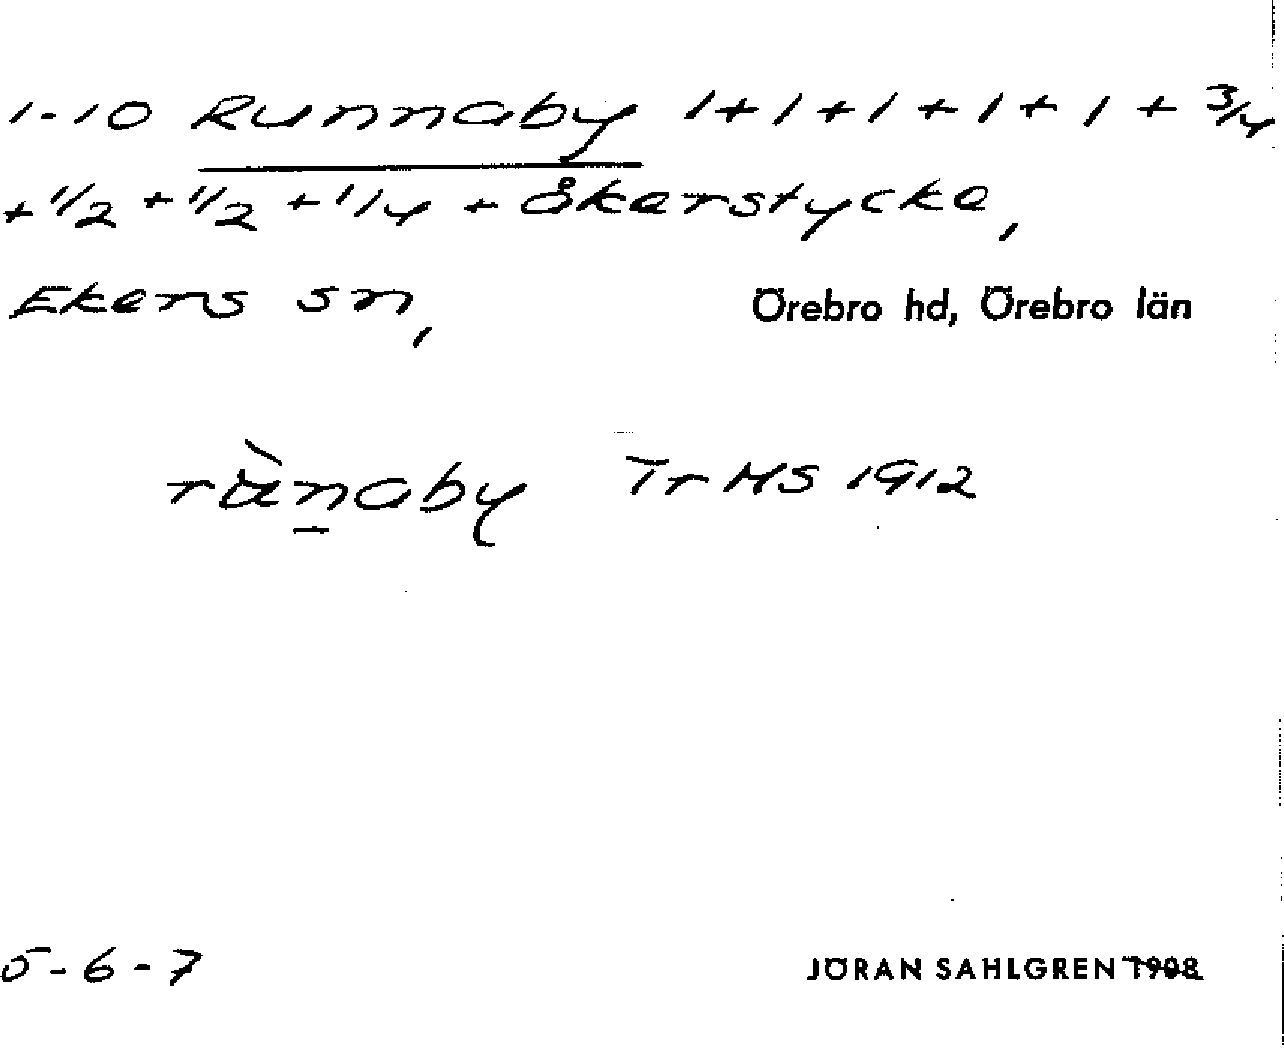 1-10 Runnaby 1+1+1+1+1+3/4
+1/2+1/2+1/4+åkerstycke,
Ekers sn, Örebro hd, Örebro län
rùn̠aby Tr MS 1912
5-6-7 JÖRAN SAHLGREN 1908